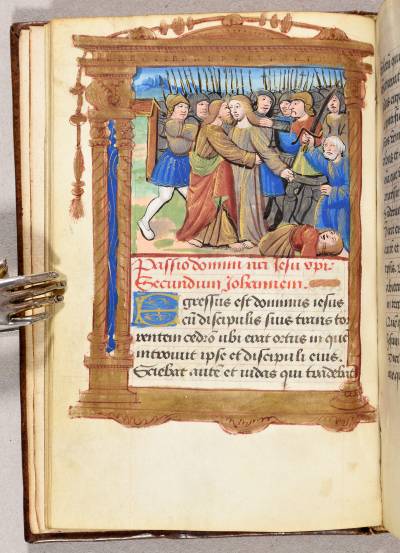 Passio domini nri Jesu xpi
Secundum Johannem.
Egressus est dominus iesus
cū discipulis suis trans tor
rentem cedrō ubi erat ortus in quē
introiuit ipse et discipuli eius.
Sciebat autē et iudas qui tradebat